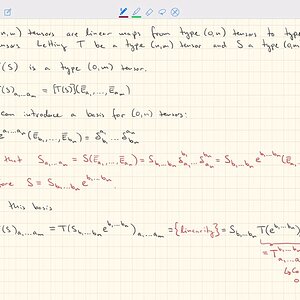 (n,m) tensors are linear maps from type (0,n) tensors to type
tensors. Letting T be a type (n,m) tensor and S a type (0,n
T(S) is a type (0,m) tensor.
(S)ₐ₁...ₐₘ = [T(S)](ē_a₁,...,ē_aₘ)
can introduce a basis for (0,n) tensors:
e^{a₁...aₙ}(ē_b₁,...,ē_bₙ) = δ^{a₁}_{b₁}...δ^{aₙ}_{bₙ}
that S_{a₁...aₙ} = S(ē_a₁,...,ē_aₙ) = S_{b₁...bₙ} δ^{b₁}_{a₁}...δ^{bₙ}_{aₙ} = S_{b₁...bₙ} e^{b₁...bₙ}(ē_a
S = S_{b₁...bₙ} e^{b₁...bₙ}
this basis
(S)_{a₁...aₘ} = T(S_{b₁...bₙ} e^{b₁...bₙ})_{a₁...aₘ} = {linearity} = S_{b₁...bₙ} T(e^{b₁...bₙ})
= T^{b₁...bₙ}_{a₁...a